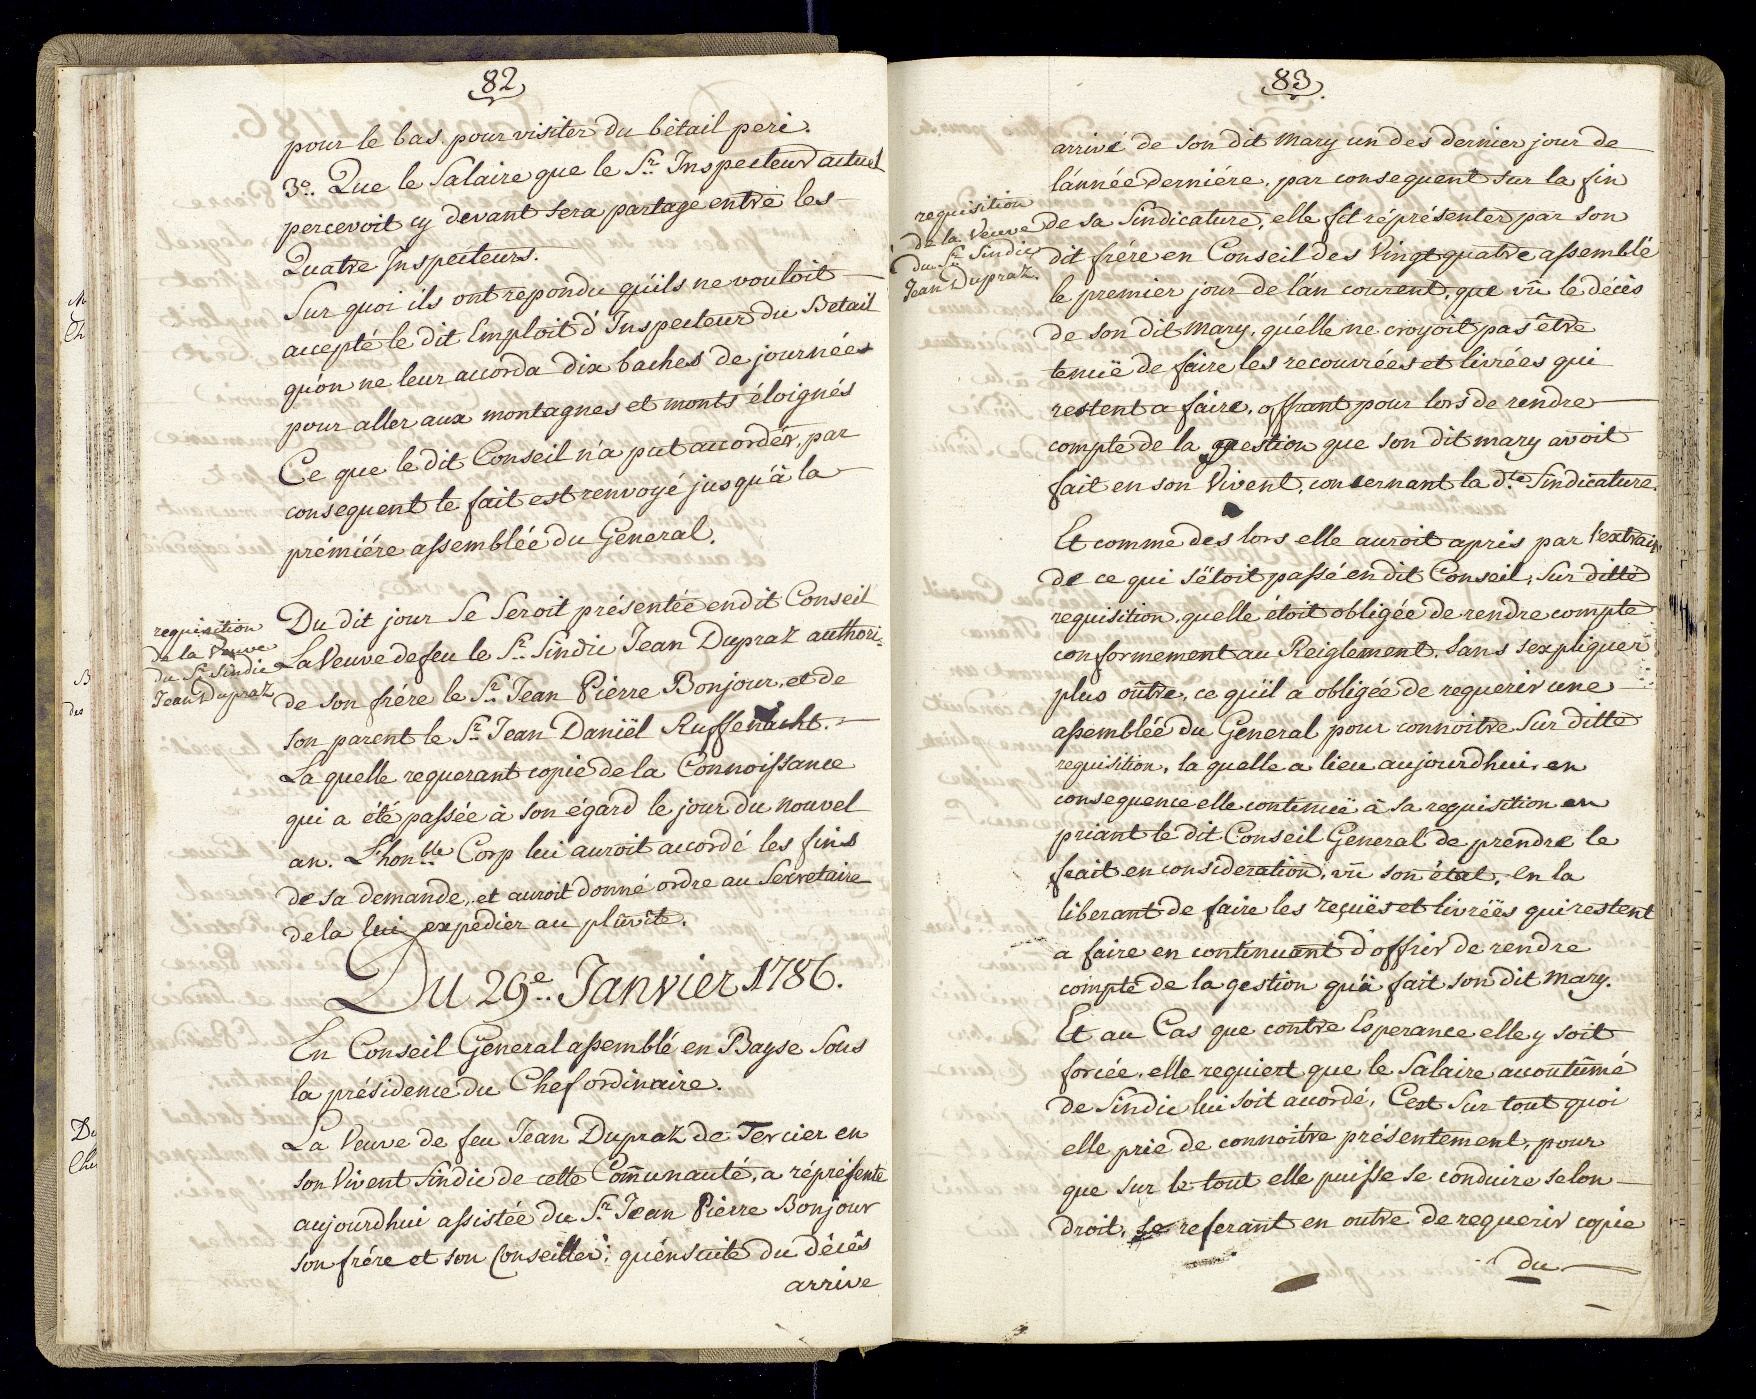 82
pour le bas pour visiter du bétail peri.
3.e Que le Salaire que le S.r Inspecteur actuel
percevoit cy devant sera partage entre les
Quatre Inspecteurs.
Sur quoi ils ont repondu qu'ils ne vouloit
accepté le dit Emploit d'Inspecteur du Betail
qu'on ne leur accorda dix baches de journées
pour aller aux montagnes et monts éloignés
Ce que le dit Conseil n'a put accorder, par
consequent le fait est renvoyé jusqu'à la
prémiére assemblée du General.
requisition
de la Veuve
du S.r Sindic
Jean Dupraz
Du dit jour Se Seroit présentée en dit Conseil
La Veuve de feu le S.r Sindic Jean Dupraz authori:
de son frére le S.r Jean Pierre Bonjour, et de
son parent le S.r Jean Daniël Ruffenacht.
La quelle requerant copie de la Connoissance
qui a été passée à son égard le jour du nouvel
an. L'hon.ble Corp lui auroit accordé les fins
de sa demande, et auroit donné ordre au Secretaire
de la lui expedier au plûvite.
Du 29.e Janvier 1786.
En Conseil General assemblé en Bayse Sous
la présidence du Chef ordinaire.
La Veuve de feu Jean Dupraz de Tercier en
son Vivent Sindic de cette Com̃unauté, a répresente
aujourdhui assistée du S.r Jean Pierre Bonjour
son frére et son Conseiller; qu'ensuite du décés
arrive
83
arrivé de son dit Mary un des dernier jour de
l'année derniére, par consequent sur la fin
requisition
de la Veuve
du S.r Sindic
Jean Dupraz.
de sa Sindicature, elle fit réprésenter par son
dit frére en Conseil des Vingt quatre assemblé
le premier jour de l'an courent, que vû le décès
de son dit Mary, qu'elle ne croyoit pas être
tenuë de faire les recouvrées et livrées qui
restent a faire, offrant pour lors de rendre
compte de la gestion que son dit mary avoit
fait en son Vivent, concernant la d.te Sindicature.
Et comme des lors elle auroit apris par l'extrait
de ce qui s'étoit passé en dit Conseil, Sur ditte
requisition, quelle étoit obligée de rendre compte
conformement au Reiglement. Sans s'expliquer
plus oûtre, ce qu'il a obligée de requerir une
assemblée du General pour connoitre Sur ditte
requisition, la quelle a lieu aujourdhui, en
consequence elle continuë à sa requisition en
priant le dit Conseil General de prendre le
fait en consideration, vû son état, en la
liberant de faire les reçuës et livrées qui restent
a faire en continuant d'offrir de rendre
compte de la gestion qu'a fait son dit Mary.
Et au Cas que contre Esperance elle y soit
forcée, elle requiert que le Salaire accoutûmé
de Sindic lui soit accordé, C'est Sur tout quoi
elle prie de connoitre présentement, pour
que sur le tout elle puisse se conduire selon
droit, se referant en outre de requerir copie
du